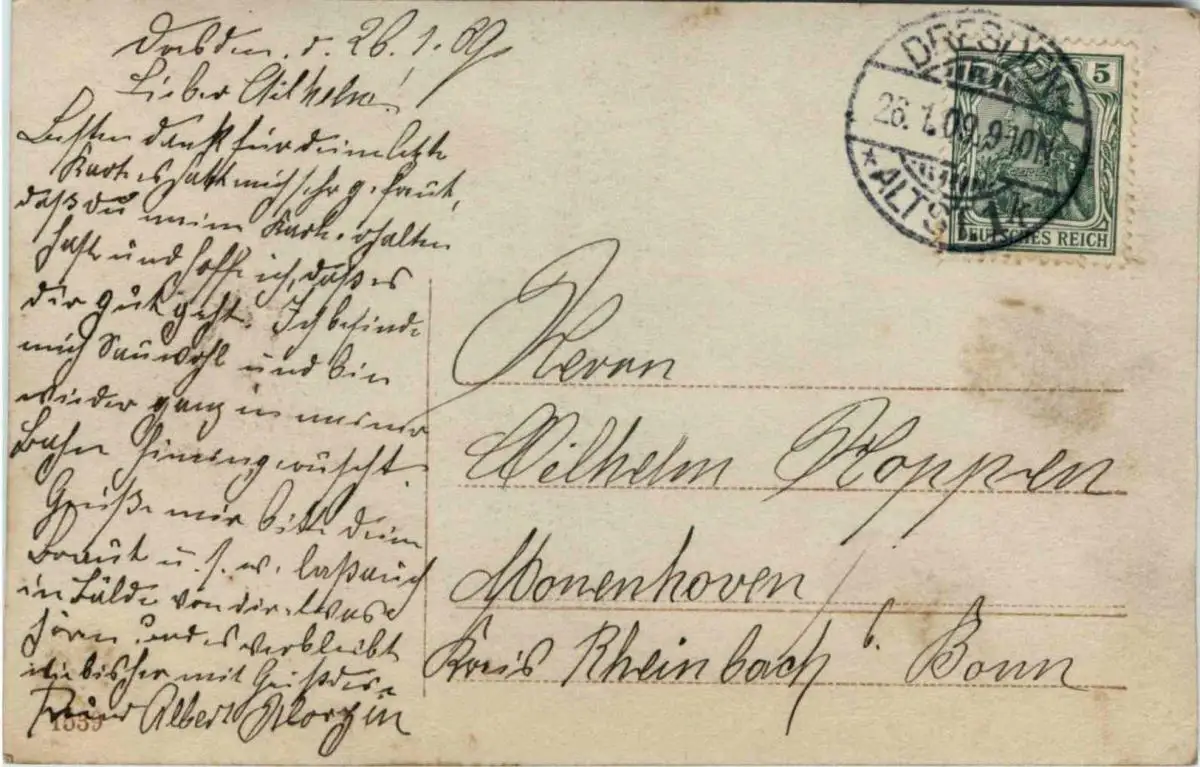 Dresden, d. 26.1.09.
Lieber Wilhelm!
Besten dank für deine letzte
Karte es hatt mich sehr gefreut,
daß du meine Karte erhalten
hast und hoffe ich, daß es
dir gut geht. Ich befinde
mich Sauwohl und bin
wieder ganz in meiner
Bahn
Grüße mir bitte deine
Braut u. s. w. laß auch
in Bälde von dir etwas
hören und es verbleibt
wie bisher mit Gruß dein
Freund Albert
1539
DRESDEN
26.1.09. 9-10N.
* ALTST. 1k
5
DEUTSCHES REICH
Herrn
Wilhelm Koppen
Morenhoven
Kreis Rheinbach b. Bonn